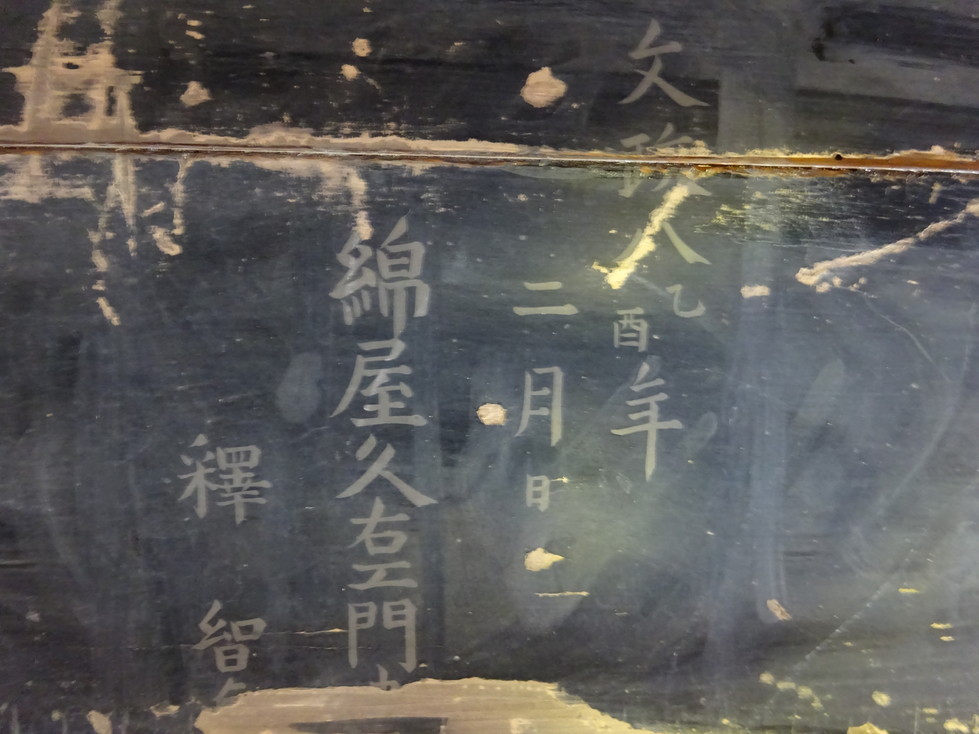 文政八乙酉年
二月日
綿屋久右エ門
釋 智